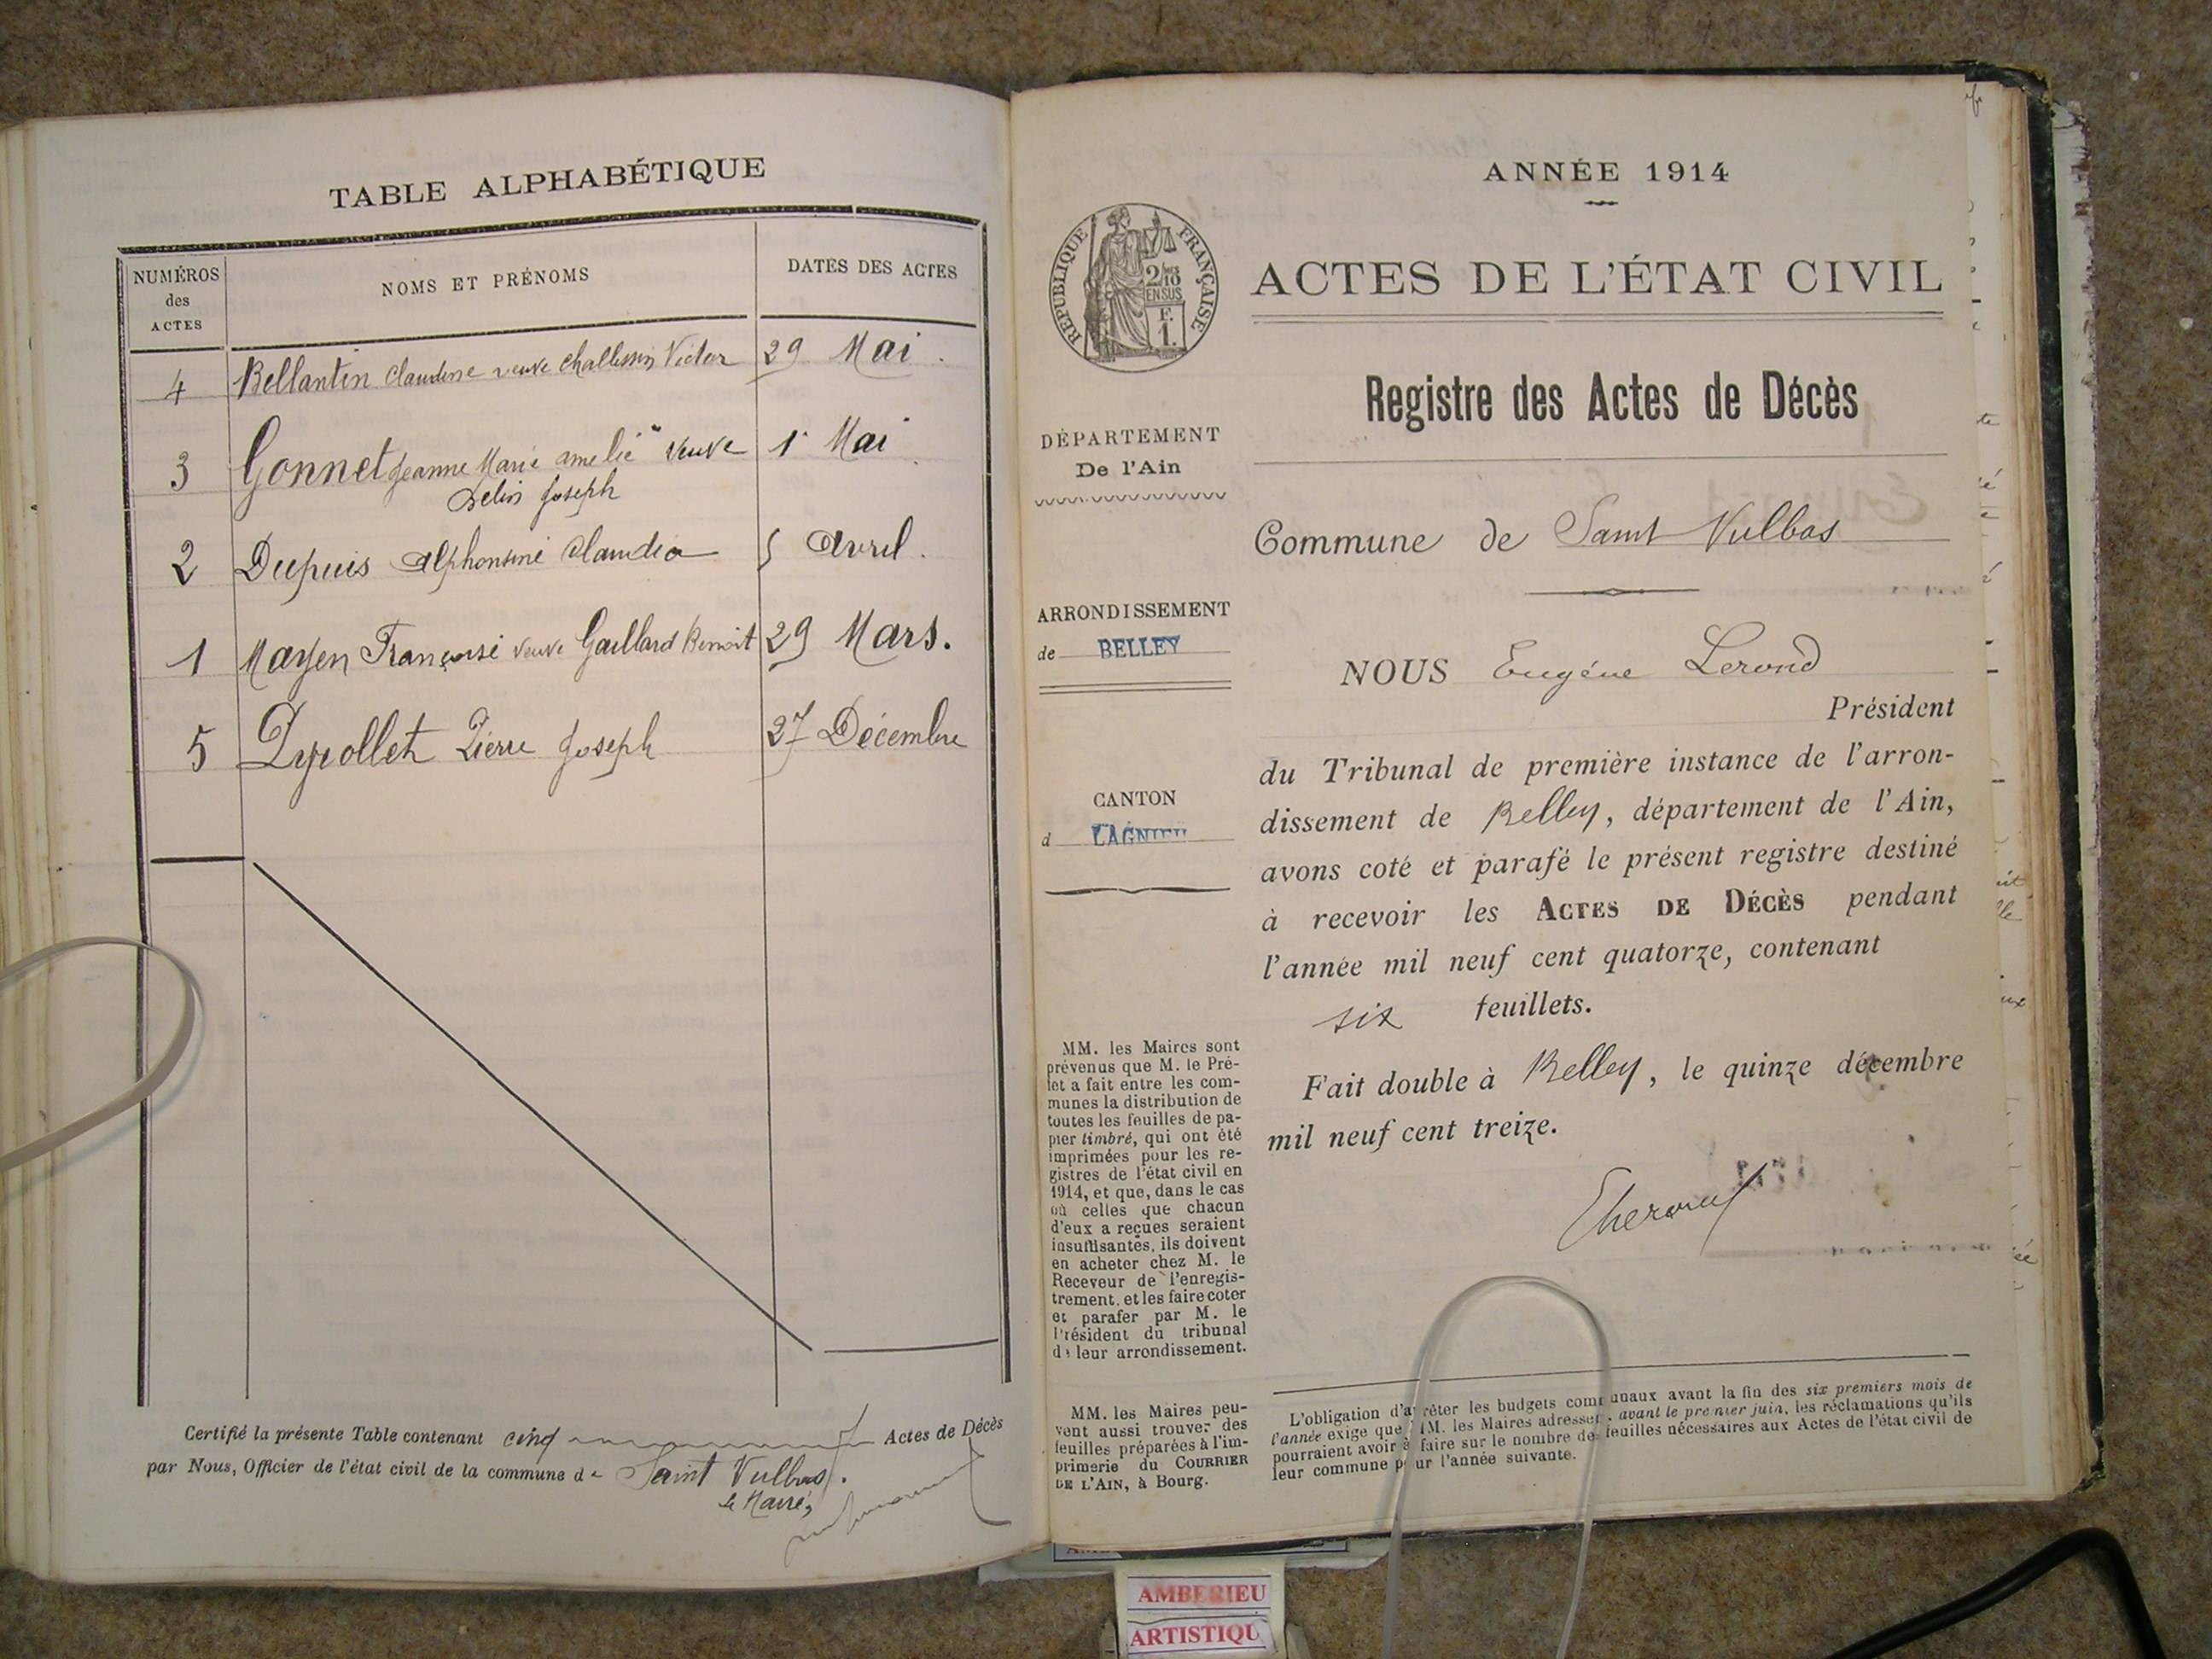 TABLE ALPHABÉTIQUE
NUMÉROS
des
ACTES
NOMS ET PRÉNOMS
DATES DES ACTES
4 Bellantin Claudine veuve Victor 29 Mai.
3 Gonnet Jeanne Marie amelie veuve 1 Mai
Joseph
2 Dupuis alphonsine Claudia 5 Avril.
1 Mayen Françoise veuve Gaillard Benoit 29 Mars.
5 Pyrollet Pierre Joseph 27 Décembre
Certifié la présente Table contenant cinq Actes de Décès
par Nous, Officier de l'état civil de la commune de Saint Vulbas.
le Maire,
ANNÉE 1914
RÉPUBLIQUE FRANÇAISE
2/10
EN SUS
F.
1.
ACTES DE L'ÉTAT CIVIL
Registre des Actes de Décès
DÉPARTEMENT
De l'Ain
Commune de Saint Vulbas
ARRONDISSEMENT
de BELLEY
NOUS Eugène Lerond
Président
du Tribunal de première instance de l'arron-
dissement de Belley, département de l'Ain,
avons coté et parafé le présent registre destiné
à recevoir les ACTES DE DÉCÈS pendant
l'année mil neuf cent quatorze, contenant
six feuillets.
Fait double à Belley, le quinze décembre
mil neuf cent treize.
CANTON
d LAGNIEU
MM. les Maires sont
prévenus que M. le Pré-
fet a fait entre les com-
munes la distribution de
toutes les feuilles de pa-
pier timbré, qui ont été
imprimées pour les re-
gistres de l'état civil en
1914, et que, dans le cas
où celles que chacun
d'eux a reçues seraient
insuffisantes, ils doivent
en acheter chez M. le
Receveur de l'enregis-
trement, et les faire coter
et parafer par M. le
Président du tribunal
de leur arrondissement.
MM. les Maires peu-
vent aussi trouver des
feuilles préparées à l'im-
primerie du COURRIER
DE L'AIN, à Bourg.
L'obligation d'arrêter les budgets communaux avant la fin des six premiers mois de
l'année exige que MM. les Maires adressent, avant le premier juin, les réclamations qu'ils
pourraient avoir à faire sur le nombre de feuilles nécessaires aux Actes de l'état civil de
leur commune pour l'année suivante.
AMBERIEU
ARTISTIQU